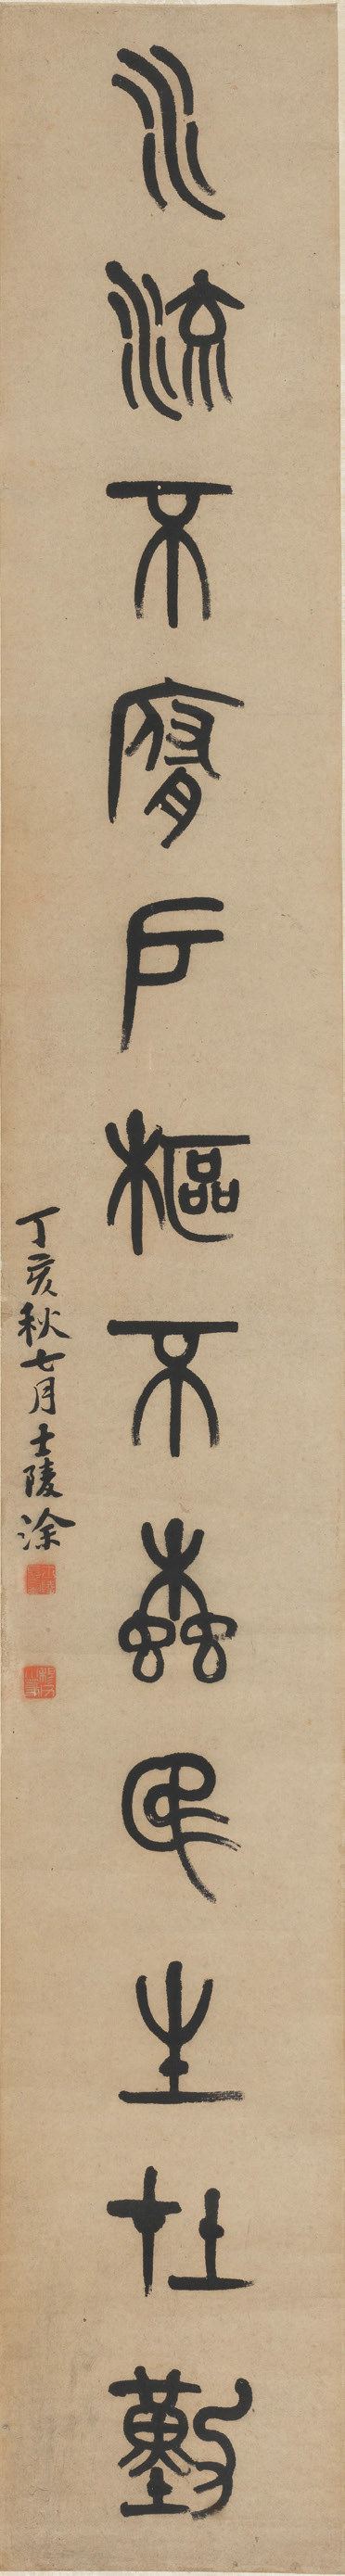 水流不腐戶樞不蠹民生在勤
丁亥秋七月士陵塗